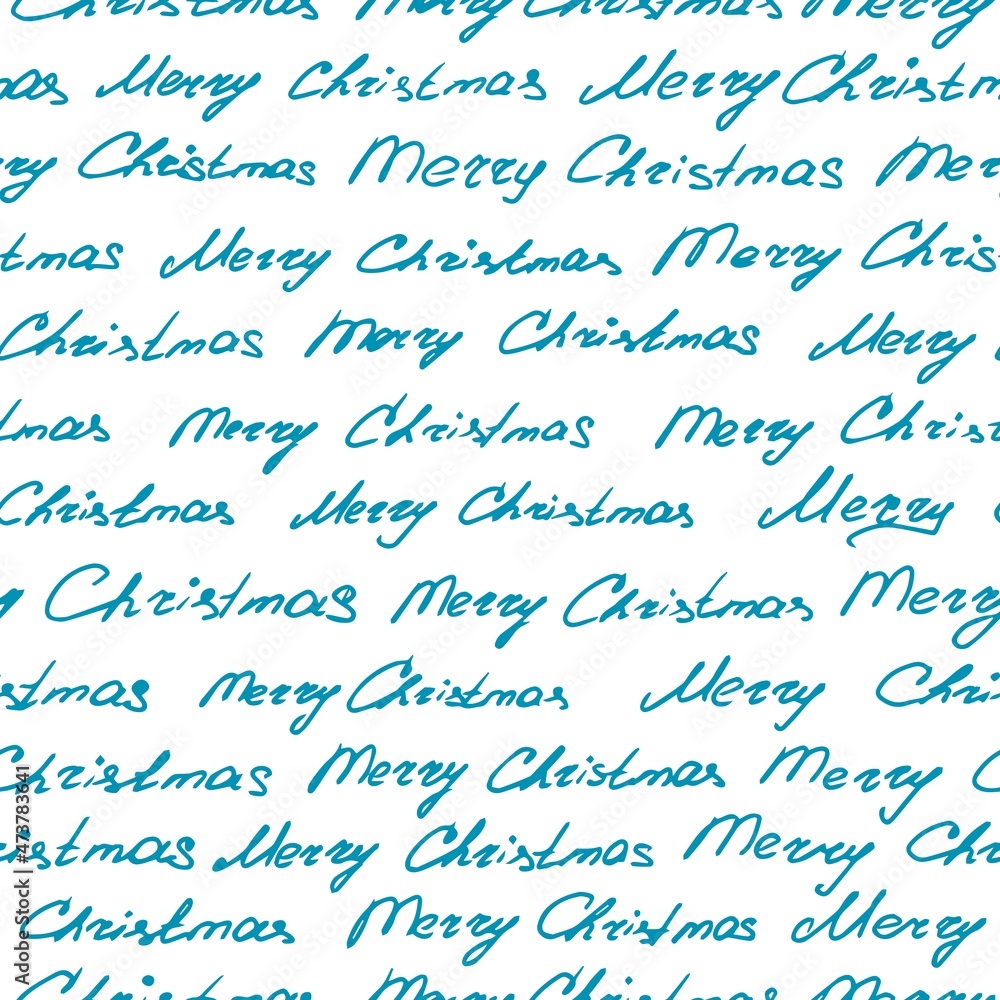 Christmas Merry Christmas Merry
mas Merry Christmas Merry Christm
rry Christmas Merry Christmas Mer
tmas Merry Christmas Merry Chris
Christmas Merry Christmas Merry
tmas Merry Christmas Merry Christ
Christmas Merry Christmas Merry
y Christmas Merry Christmas Merry
stmas Merry Christmas Merry Chri
Christmas Merry Christmas Merry
ristmas Merry Christmas Merry Chr
Christmas Merry Christmas Merry
Christmas Merry Christmas Merry
Adobe Stock | #473783641